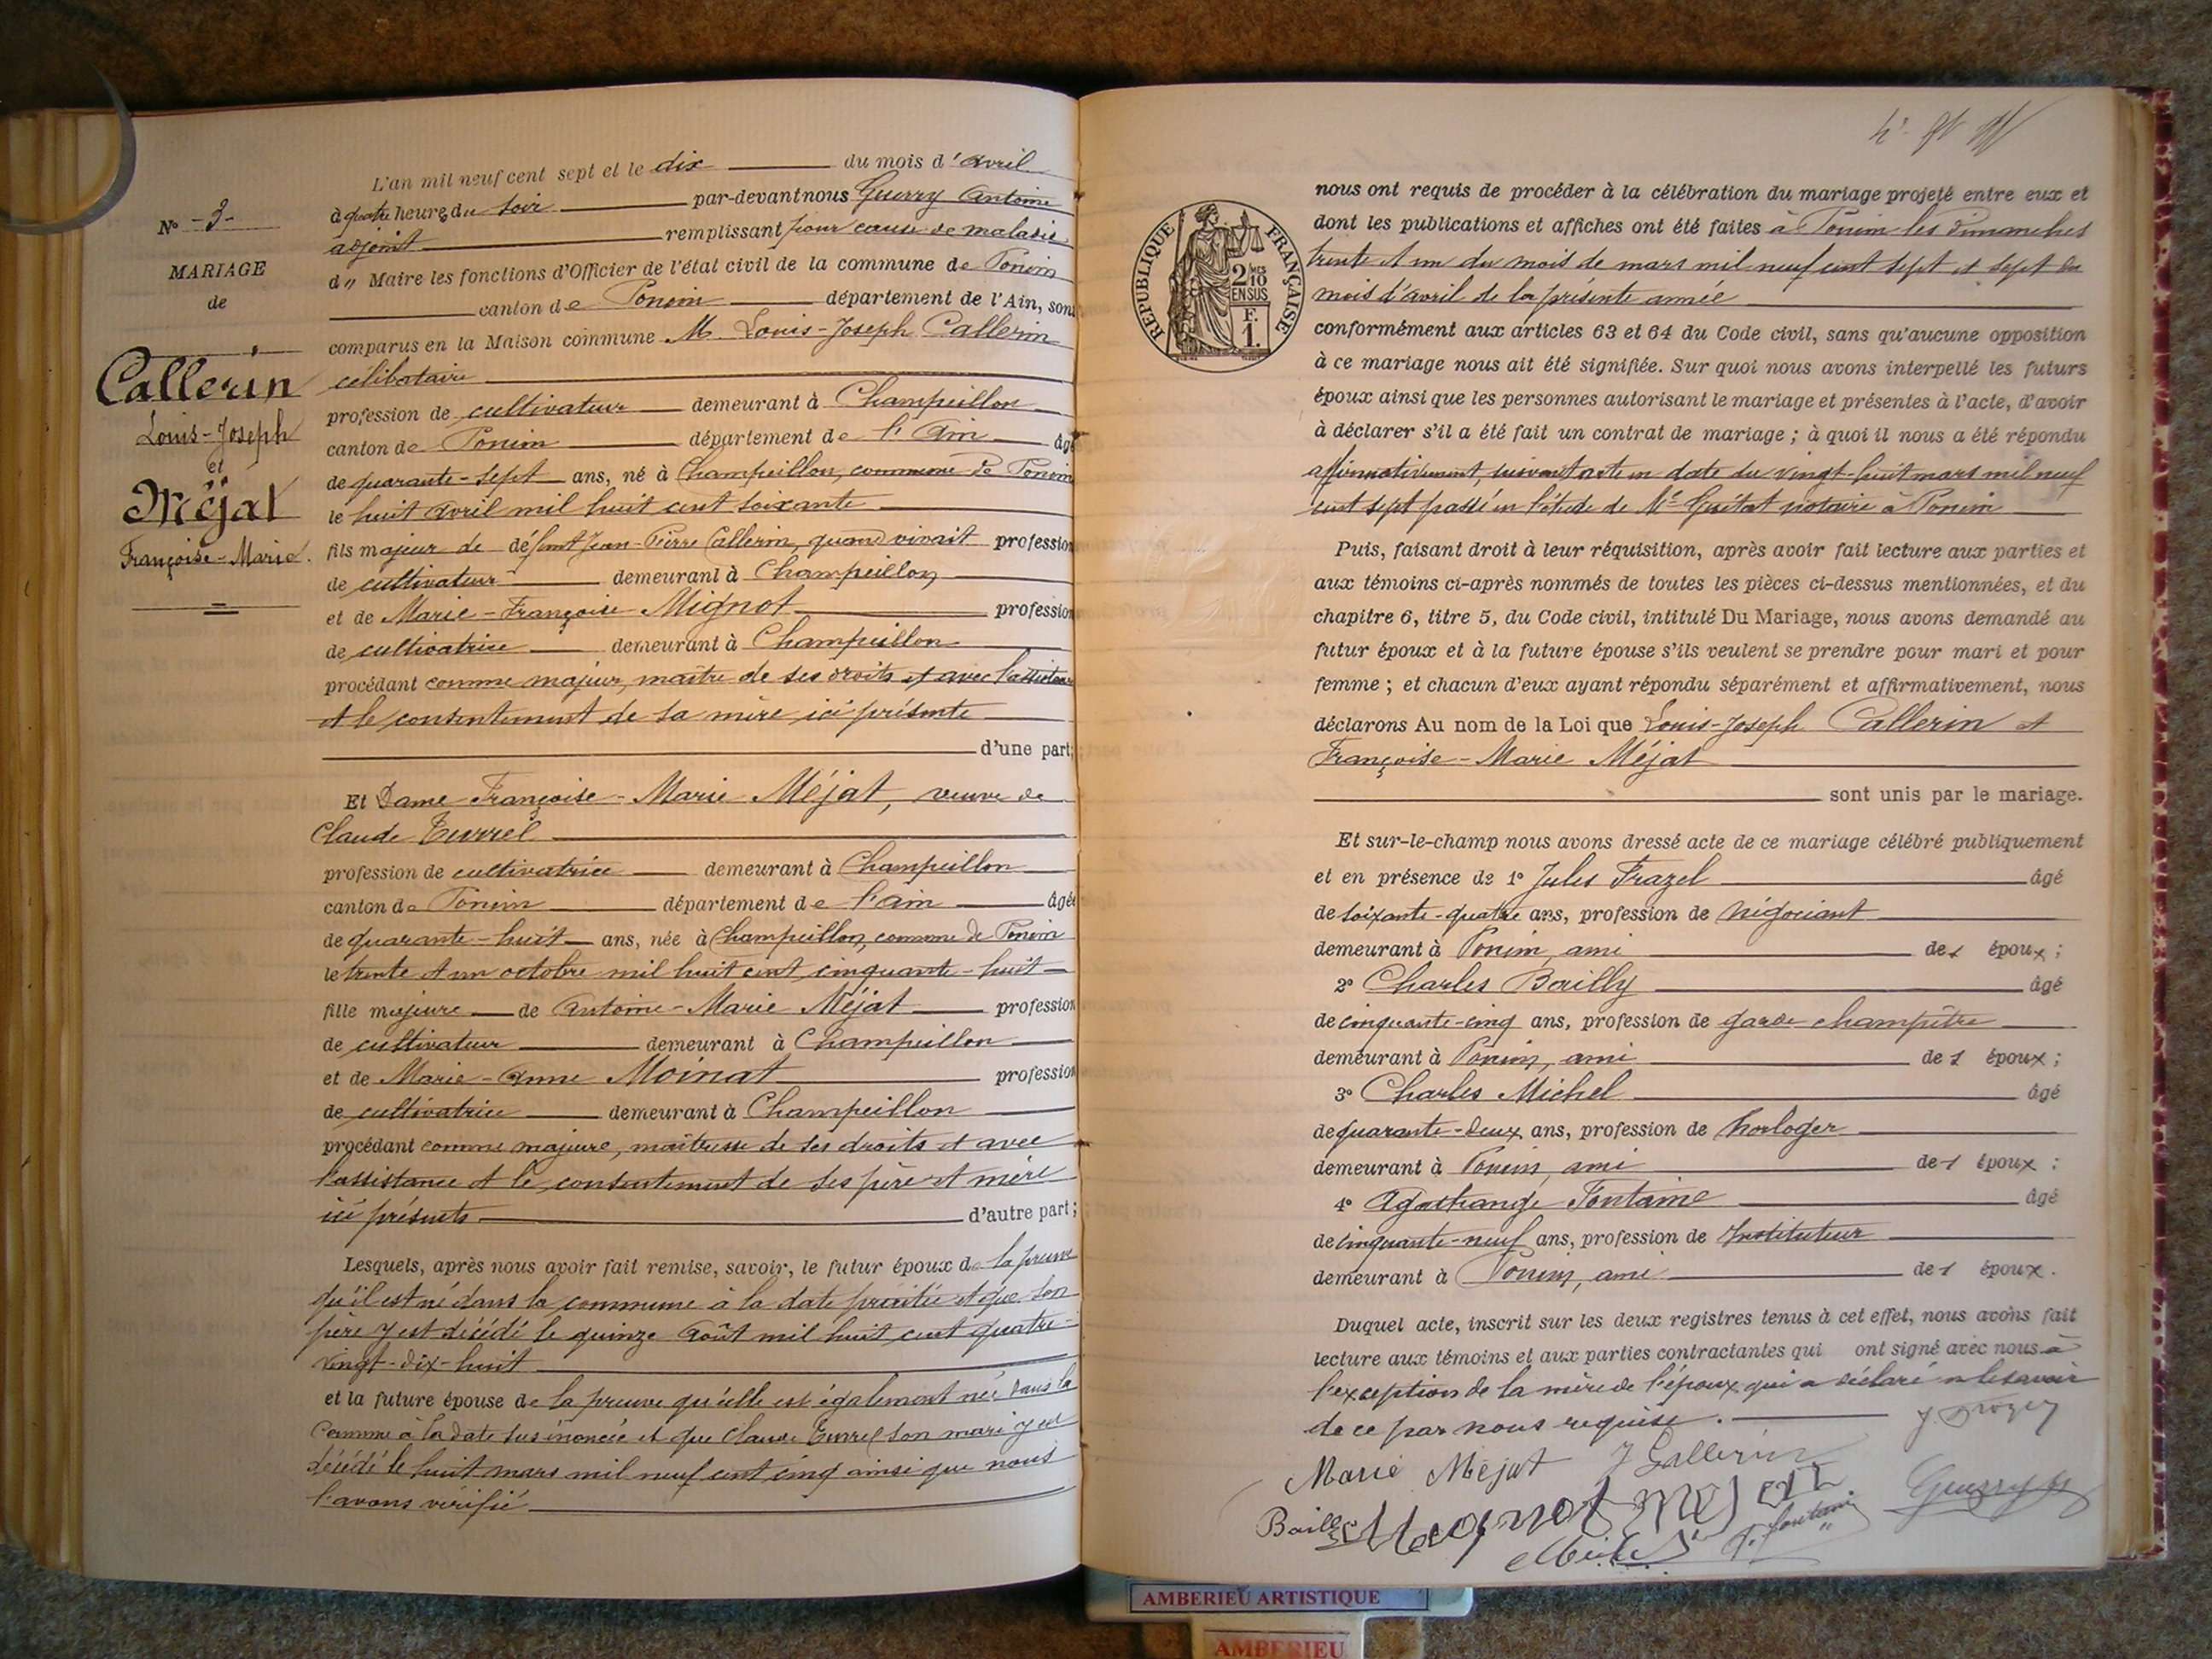 L'an mil neuf cent sept et le dix du mois d'avril
à quatre heures du soir par-devant nous Guerry Antoine
adjoint remplissant pour cause de maladie
d" Maire les fonctions d'Officier de l'état civil de la commune de Poncin
canton de Poncin département de l'Ain, sont
comparus en la Maison commune M. Louis-Joseph Callerin
célibataire
profession de cultivateur demeurant à Champeillon
canton de Poncin département de l'Ain âgé
de quarante-sept ans, né à Champeillon, commune de Poncin
le huit avril mil huit cent soixante
fils majeur de défunt Jean-Pierre Callerin, quand vivait profession
de cultivateur demeurant à Champeillon
et de Marie-Françoise Mignot profession
de cultivatrice demeurant à Champeillon
procédant comme majeur, maître de ses droits et avec l'assistance
et le consentement de sa mère ici présente
d'une part;
Et Dame Françoise-Marie Méjat, veuve de
Claude Turrel
profession de cultivatrice demeurant à Champeillon
canton de Poncin département de l'ain âgée
de quarante-huit ans, née à Champeillon, commune de Poncin
le trente et un octobre mil huit cent cinquante-huit
fille majeure de Antoine-Marie Méjat profession
de cultivateur demeurant à Champeillon
et de Marie-Anne Moinat profession
de cultivatrice demeurant à Champeillon
procédant comme majeure, maîtresse de ses droits et avec
l'assistance et le consentement de ses père et mère
ici présents d'autre part;
Lesquels, après nous avoir fait remise, savoir, le futur époux de la preuve
qu'il est né dans la commune à la date précitée et que son
père y est décédé le quinze Août mil huit cent quatre-
vingt-dix-huit
et la future épouse de la preuve qu'elle est également née dans la
Commune à la date sus énoncée et que Claude Turrel son mari y est
décédé le huit mars mil neuf cent cinq ainsi que nous
l'avons vérifié
N° -3-
MARIAGE
de
Callerin
Louis-Joseph
et
Méjat
Françoise-Marie.
RÉPUBLIQUE FRANÇAISE
2 MES
10
EN SUS
F.
1.
nous ont requis de procéder à la célébration du mariage projeté entre eux et
dont les publications et affiches ont été faites à Poncin les Dimanches
trente et un du mois de mars mil neuf cent sept et sept du
mois d'avril de la présente année
conformément aux articles 63 et 64 du Code civil, sans qu'aucune opposition
à ce mariage nous ait été signifiée. Sur quoi nous avons interpellé les futurs
époux ainsi que les personnes autorisant le mariage et présentes à l'acte, d'avoir
à déclarer s'il a été fait un contrat de mariage ; à quoi il nous a été répondu
affirmativement, suivant acte en date du vingt-huit mars mil neuf
cent sept passé en l'étude de Me Guétat notaire à Poncin
Puis, faisant droit à leur réquisition, après avoir fait lecture aux parties et
aux témoins ci-après nommés de toutes les pièces ci-dessus mentionnées, et du
chapitre 6, titre 5, du Code civil, intitulé Du Mariage, nous avons demandé au
futur époux et à la future épouse s'ils veulent se prendre pour mari et pour
femme ; et chacun d'eux ayant répondu séparément et affirmativement, nous
déclarons Au nom de la Loi que Louis-Joseph Callerin et
Françoise-Marie Méjat
sont unis par le mariage.
Et sur-le-champ nous avons dressé acte de ce mariage célébré publiquement
et en présence de 1° Jules Frazel âgé
de soixante-quatre ans, profession de négociant
demeurant à Poncin, ami des époux ;
2° Charles Bailly âgé
de cinquante-cinq ans, profession de garde champêtre
demeurant à Poncin, ami des époux ;
3° Charles Michel âgé
de quarante-deux ans, profession de horloger
demeurant à Poncin, ami des époux ;
4° Agathange Fontaine âgé
de cinquante-neuf ans, profession de Instituteur
demeurant à Poncin, ami des époux.
Duquel acte, inscrit sur les deux registres tenus à cet effet, nous avons fait
lecture aux témoins et aux parties contractantes qui ont signé avec nous à
l'exception de la mère de l'époux qui a déclaré ne le savoir
de ce par nous requise.
Marie Mejat J Gallerin
Bailly Moynot Mejat F. fontaine Guerry
AMBERIEU ARTISTIQUE
AMBERIEU